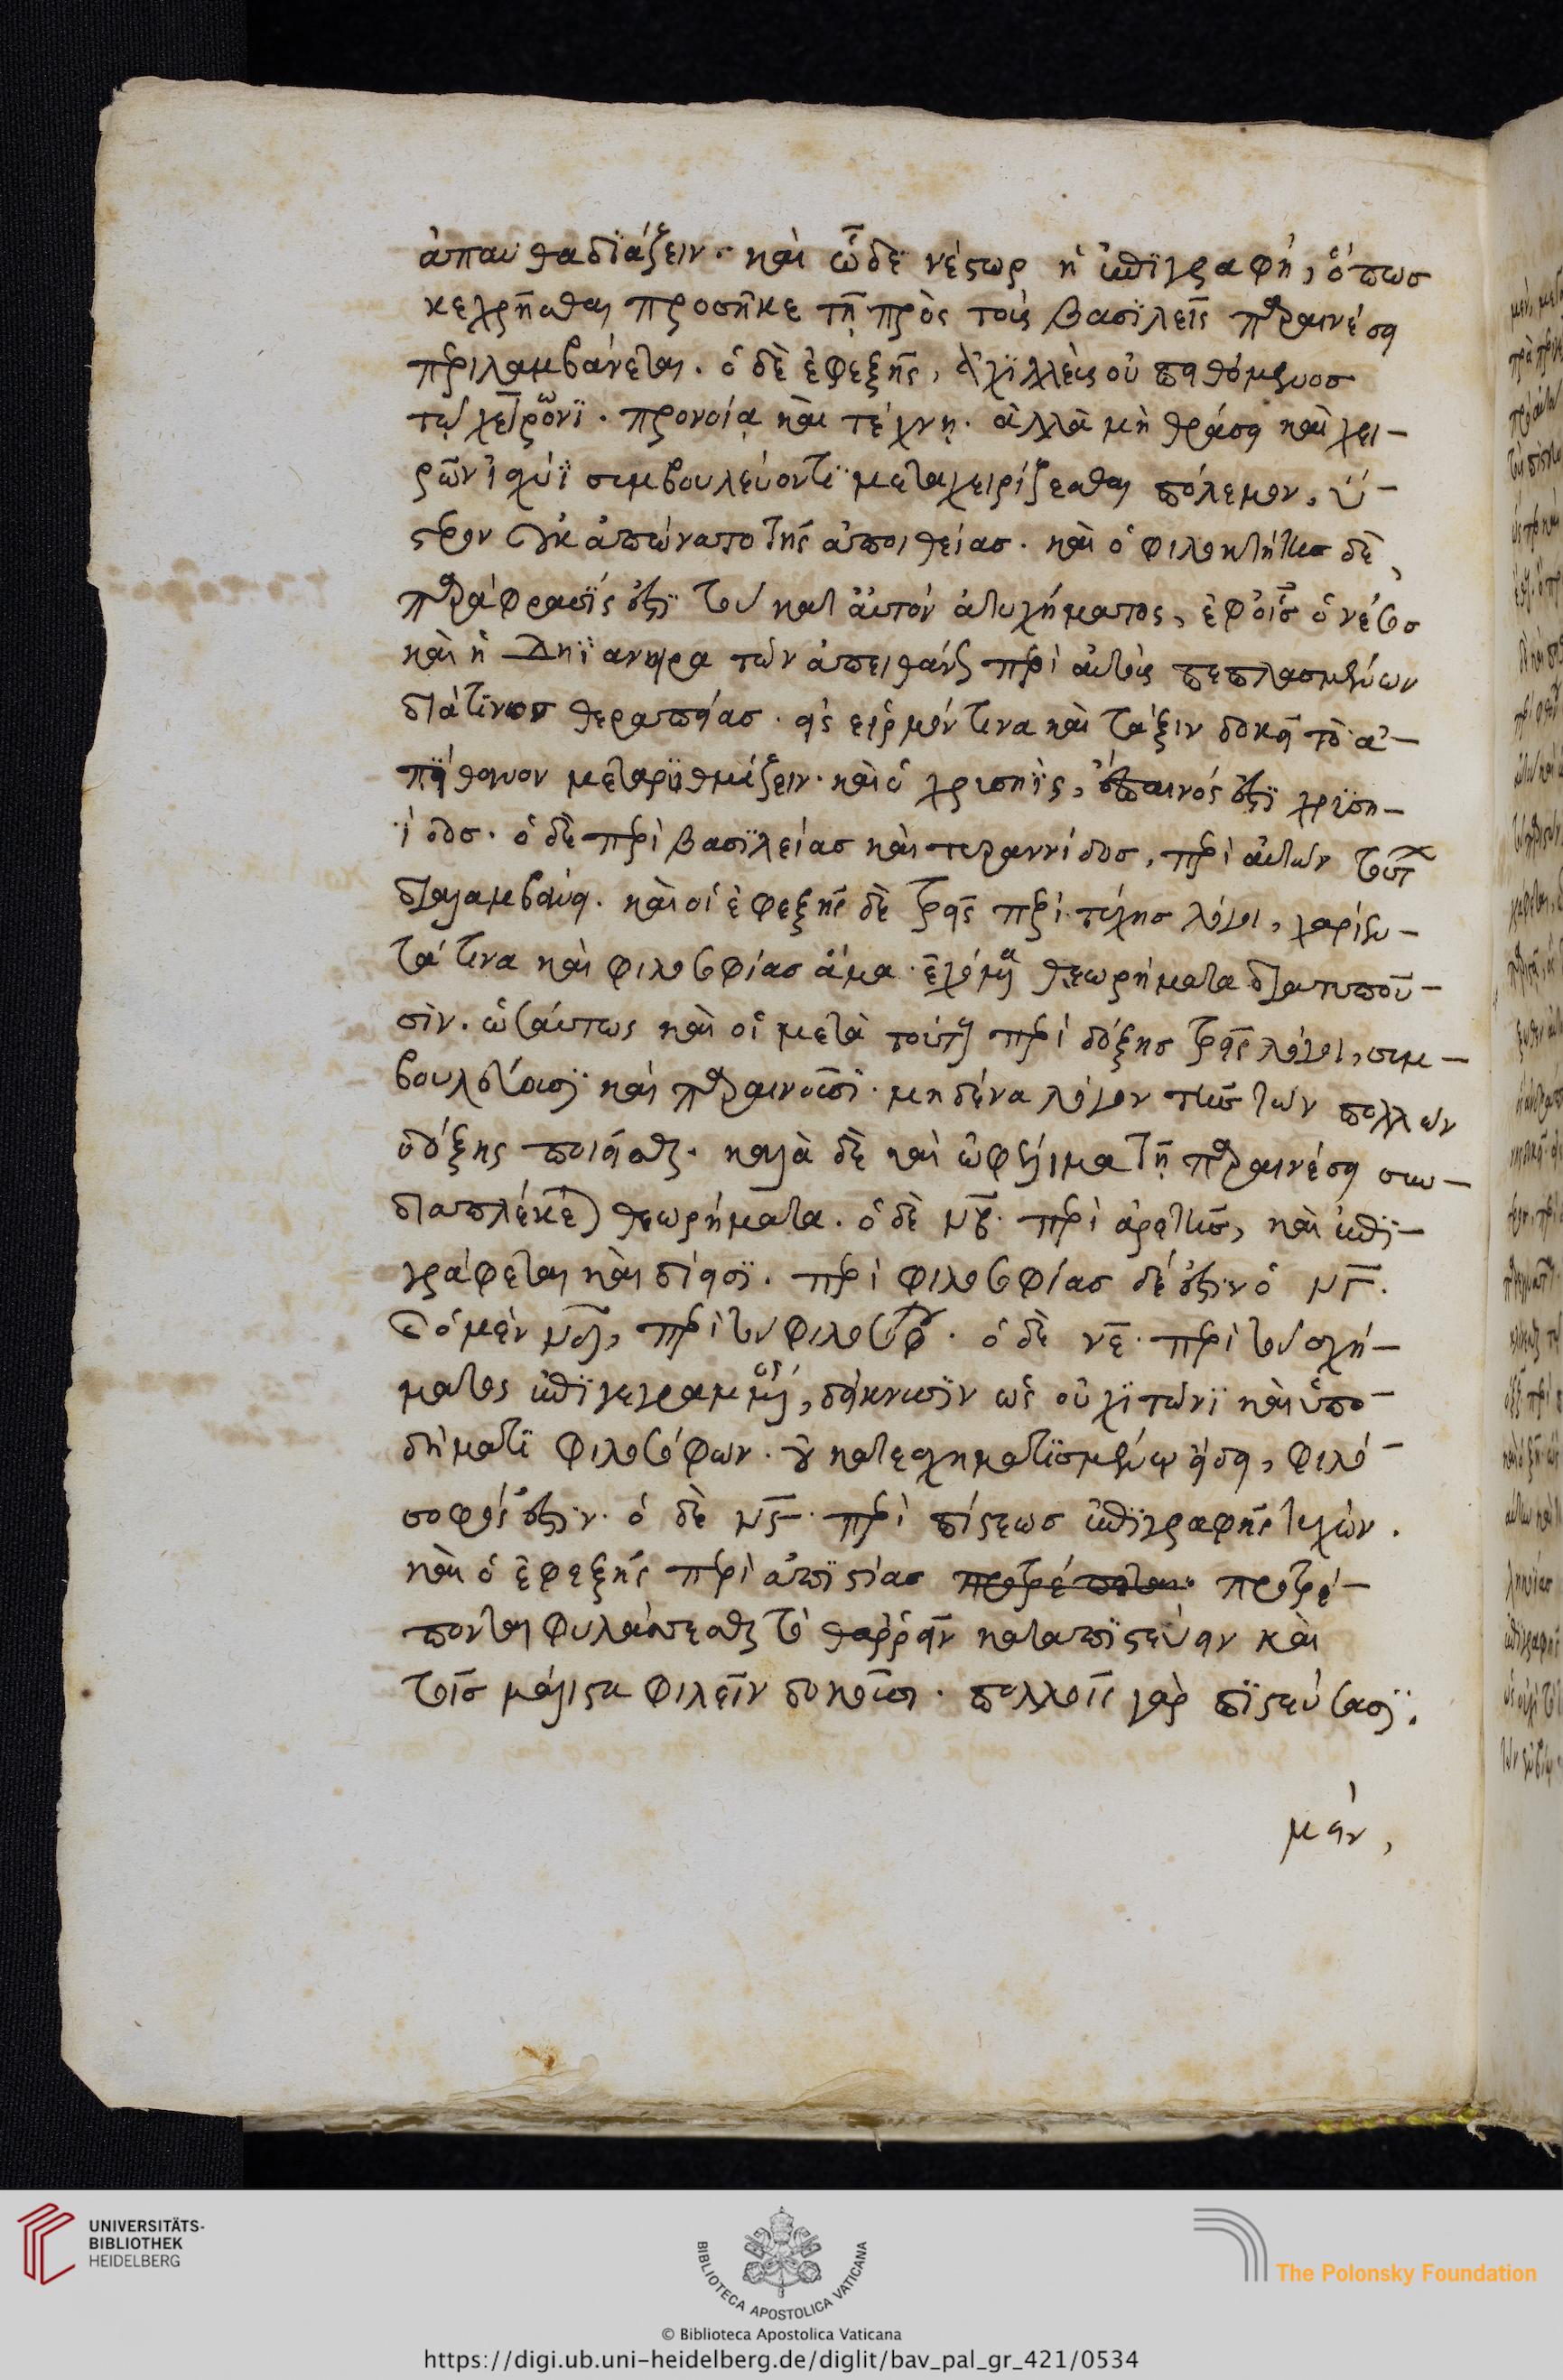 ἀπαυθαδϊάζειν. καὶ ὧδε νέστωρ ἡ ἐπϊγραφή, ὅπως
κεχρῆσθαι προσῆκε τῇ πρὸς τοὺς βασϊλεῖς παραινέσει
περιλαμβάνεται. ὁ δὲ ἐφεξῆς, ἀχϊλλεὺς οὐ πειθόμενος
τῷ χείρωνϊ. προνοίᾳ καὶ τέχνῃ. ἀλλὰ μὴ θράσει καὶ χει-
ρῶν ἰσχύϊ συμβουλεύοντϊ μεταχειρίζεσθαι πόλεμον, ὕ-
στερον οὐκ ἀπώνατο τῆς ἀποιθείας. καὶ ὁ φιλοκτήτης δὲ,
παράφρασϊς ἐστϊ τοῦ κατ αὐτὸν ἀτυχήματος, ἐφ οἷς ὁ νέσσος
καὶ ἡ Δηϊάνειρα τῶν ἀπειθάνως περὶ αὐτοὺς πεπλασμένων
διά τϊνος θεραπείας. εἰς εἱρμόν τινα καὶ τάξιν δοκεῖ τὸ ἀ-
πϊθανον μεταρϋθμίζειν. καὶ ὁ χρισηῒς, ἔπαινός ἐστϊ χρϊση-
ίδος. ὁ δὲ περὶ βασϊλείας καὶ τυραννίδος, περὶ αὐτῶν τούτων
διαλαμβάνει. καὶ οἱ ἐφεξῆς δὲ τρεῖς περὶ τύχης λόγοι, χαρίεν-
τά τινα καὶ φιλοσοφίας ἅμα ἐχόμενα θεωρήματα διατυποῦ-
σϊν. ὡσαύτως καὶ οἱ μετὰ τούτους περὶ δόξης τρεῖς λόγοι, συμ-
βουλεύουσϊ καὶ παραινοῦσϊ. μηδένα λόγον τῆς τῶν πολλῶν
δόξης ποιεῖσθαι. καλὰ δὲ καὶ ὠφέλιμα τῇ παραινέσει συν-
διαπλέκεται θεωρήματα. ὁ δὲ νβ. περὶ ἀρετῆς, καὶ ἐπϊ-
γράφεται καὶ δίεισϊ. περὶ φιλοσοφίας δέ ἐστϊν ὁ νγ.
καὶ ὁ μὲν νδ, περὶ τοῦ φιλοσόφου. ὁ δὲ νε. περὶ τοῦ σχή-
ματος ἐπϊγεγραμμένος, δείκνυσϊν ὡς οὐ χϊτῶνϊ καὶ ὑπο-
δήματϊ φιλοσόφων. ἢ κατεσχηματϊσμένῳ εἴδει, φιλό-
σοφός ἐστϊν. ὁ δὲ νϛ. περὶ πίστεως ἐπϊγραφῆς τυχών.
καὶ ὁ ἐφεξῆς περὶ ἀπϊστίας προτρέπεται προτρέ-
πονται φυλάττεσθαι τὸ θαρρεῖν καταπϊστεύειν καὶ
τοῖς μάλιστα φιλεῖν δοκοῦσι. πολλοῖς γὰρ πϊστεύσασϊ.
μὲν,
UNIVERSITÄTS-
BIBLIOTHEK
HEIDELBERG
BIBLIOTECA APOSTOLICA VATICANA
The Polonsky Foundation
© Biblioteca Apostolica Vaticana
https://digi.ub.uni-heidelberg.de/diglit/bav_pal_gr_421/0534